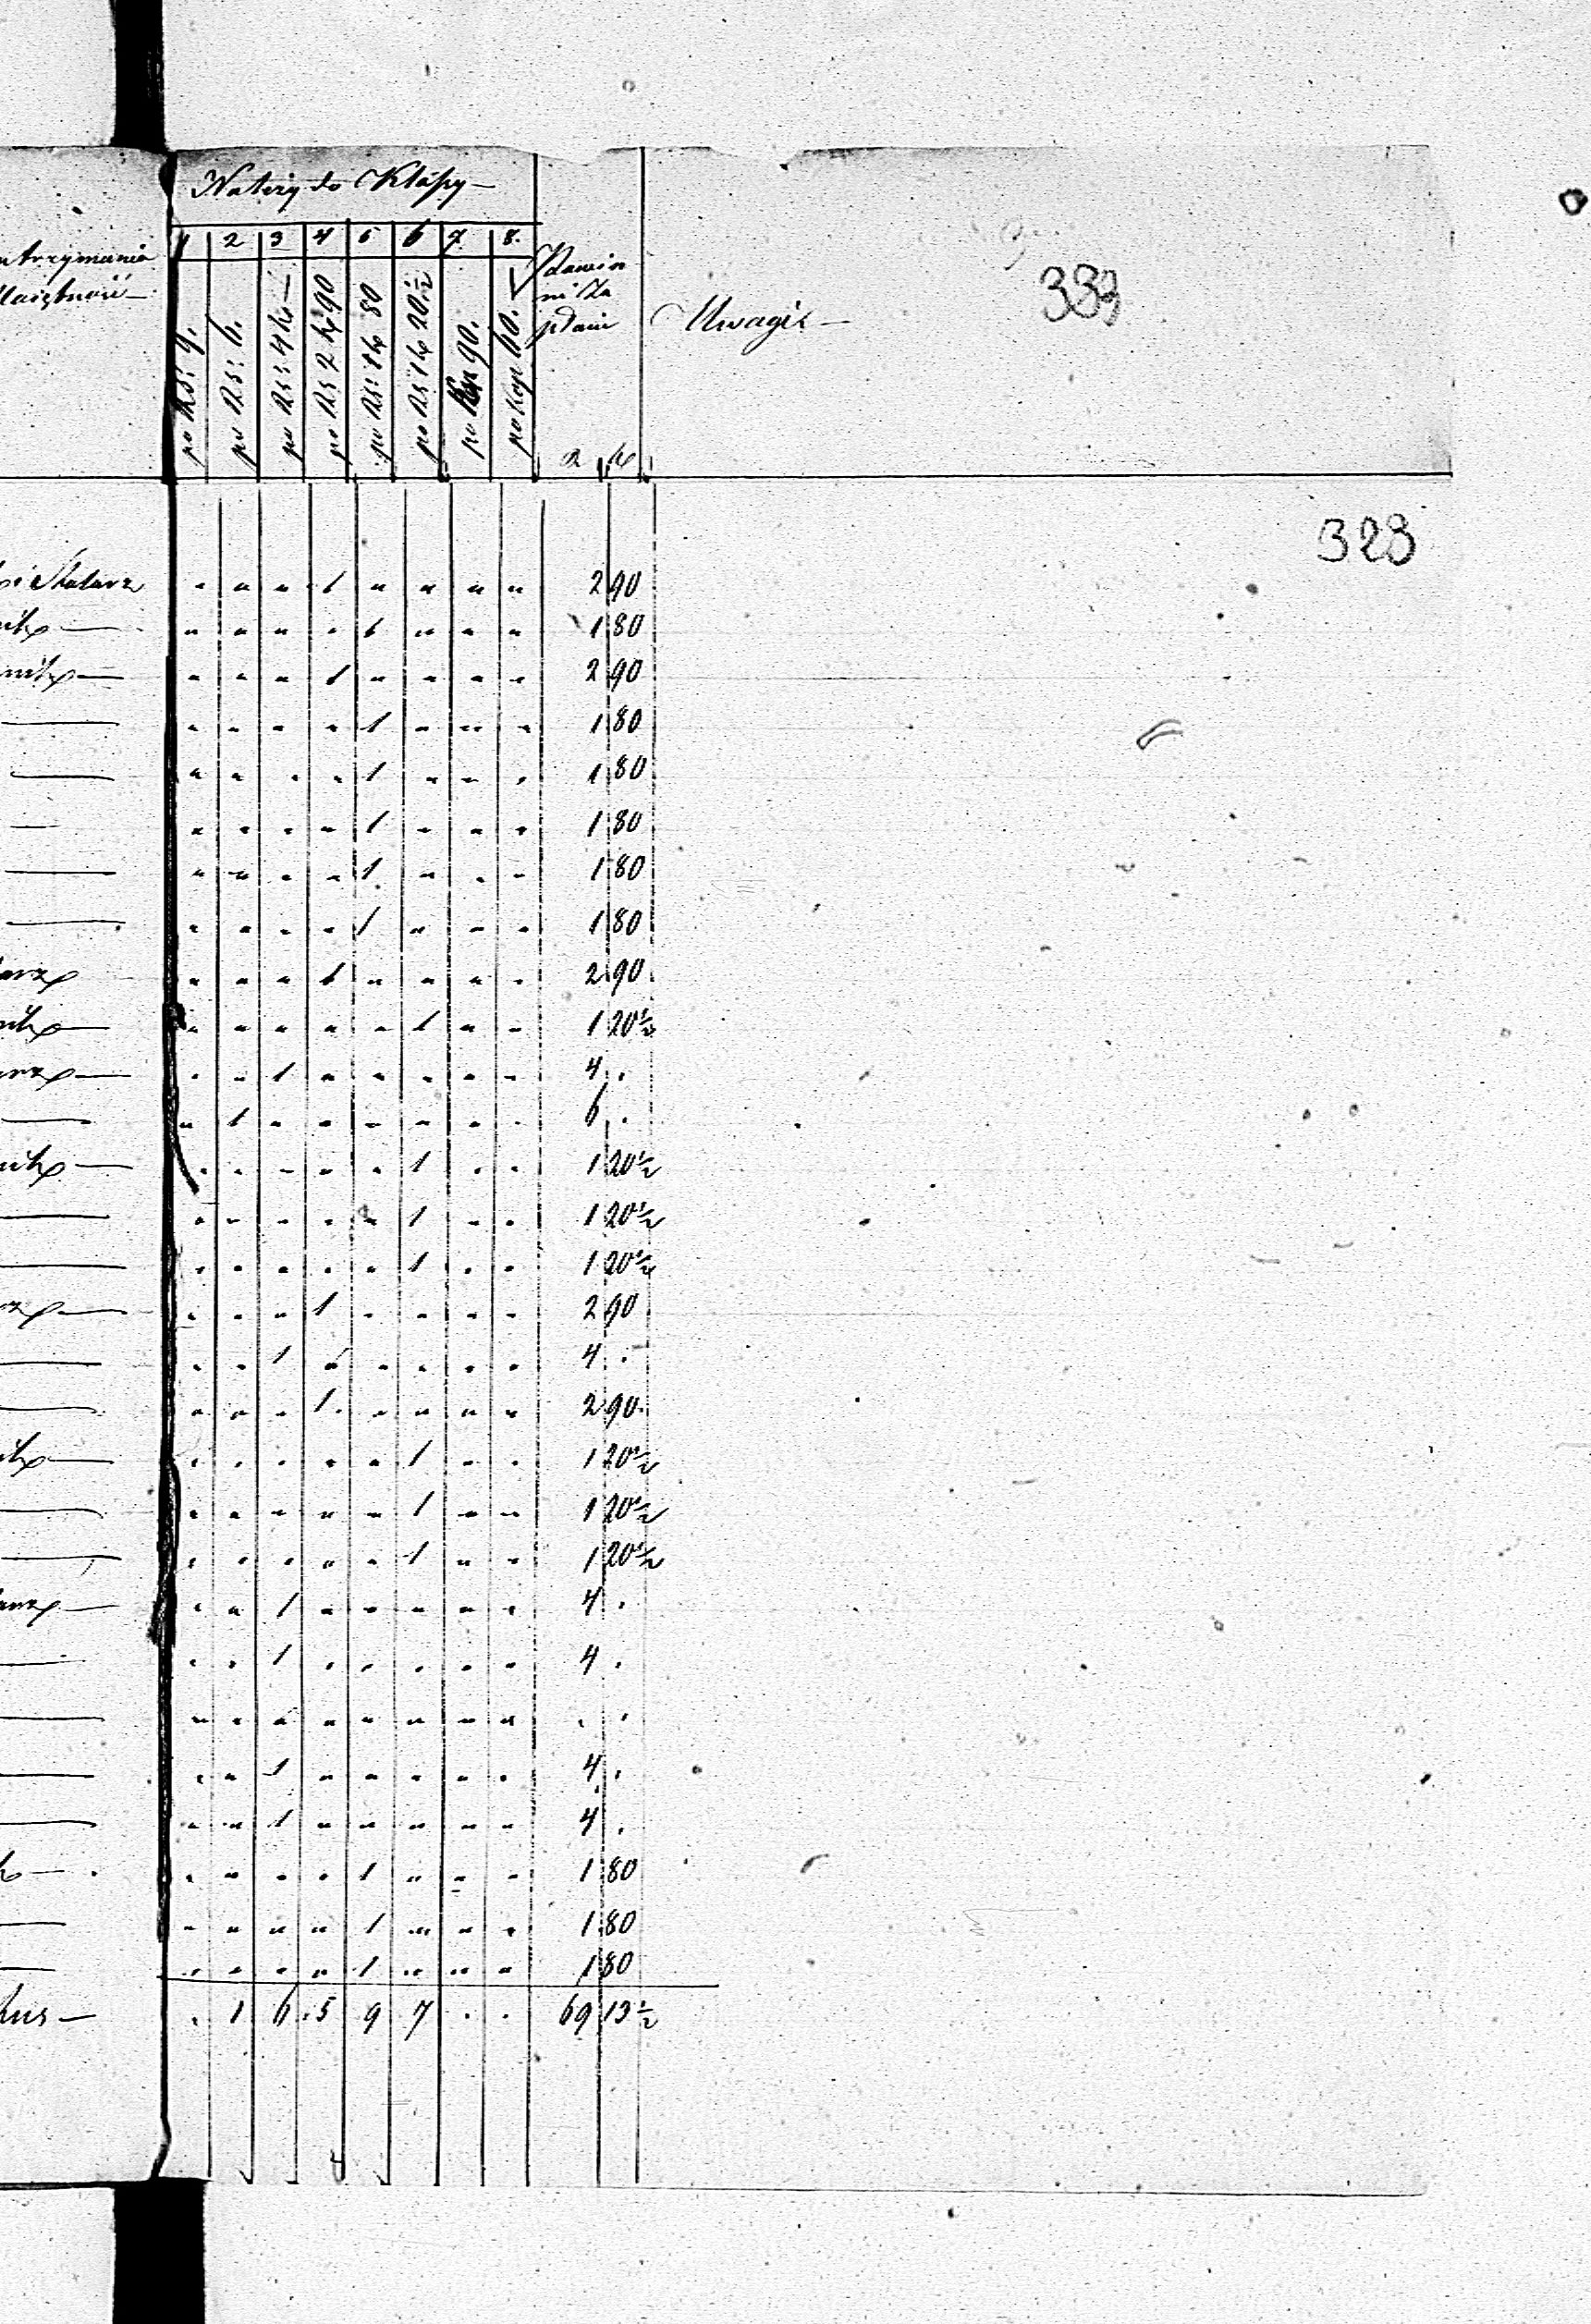 Należy do Klassy —
1 2 3 4 5 6 7 8.
utrzymania
po rs: 9.
po rs: 6.
po rs: 4 k —
po rs 2 k 90
po rs: 1 k 80
po rs 1 k 20 1/2
po kop 90.
po kop 60.
Powin
ni Za
płacić
R k
Uwagi —
333
323
" " " 1 " " " " 2 90
" " " " 1 " " " 1 80
" " " 1 " " " " 2 90
" " " " 1 " " " 1 80
" " " " 1 " " " 1 80
" " " " 1 " " " 1 80
" " " " 1 " " " 1 80
" " " " 1 " " " 1 80
" " " 1 " " " " 2 90
" " " " " 1 " " 1 20 1/2
" " 1 " " " " " 4 .
" 1 " " " " " " 6 .
" " " " " 1 " " 1 20 1/2
" " " " " 1 " " 1 20 1/2
" " " " " 1 " " 1 20 1/2
" " " 1 " " " " 2 90
" " 1 " " " " " 4 .
" " " 1 " " " " 2 90
" " " " " 1 " " 1 20 1/2
" " " " " 1 " " 1 20 1/2
" " " " " 1 " " 1 20 1/2
" " 1 " " " " " 4 .
" " 1 " " " " " 4 .
" " " " " " " " . .
" " 1 " " " " " 4 .
" " 1 " " " " " 4 .
" " " " 1 " " " 1 80
" " " " 1 " " " 1 80
" " " " 1 " " " 1 80
. 1 6 5 9 7 . . 69 13 1/2